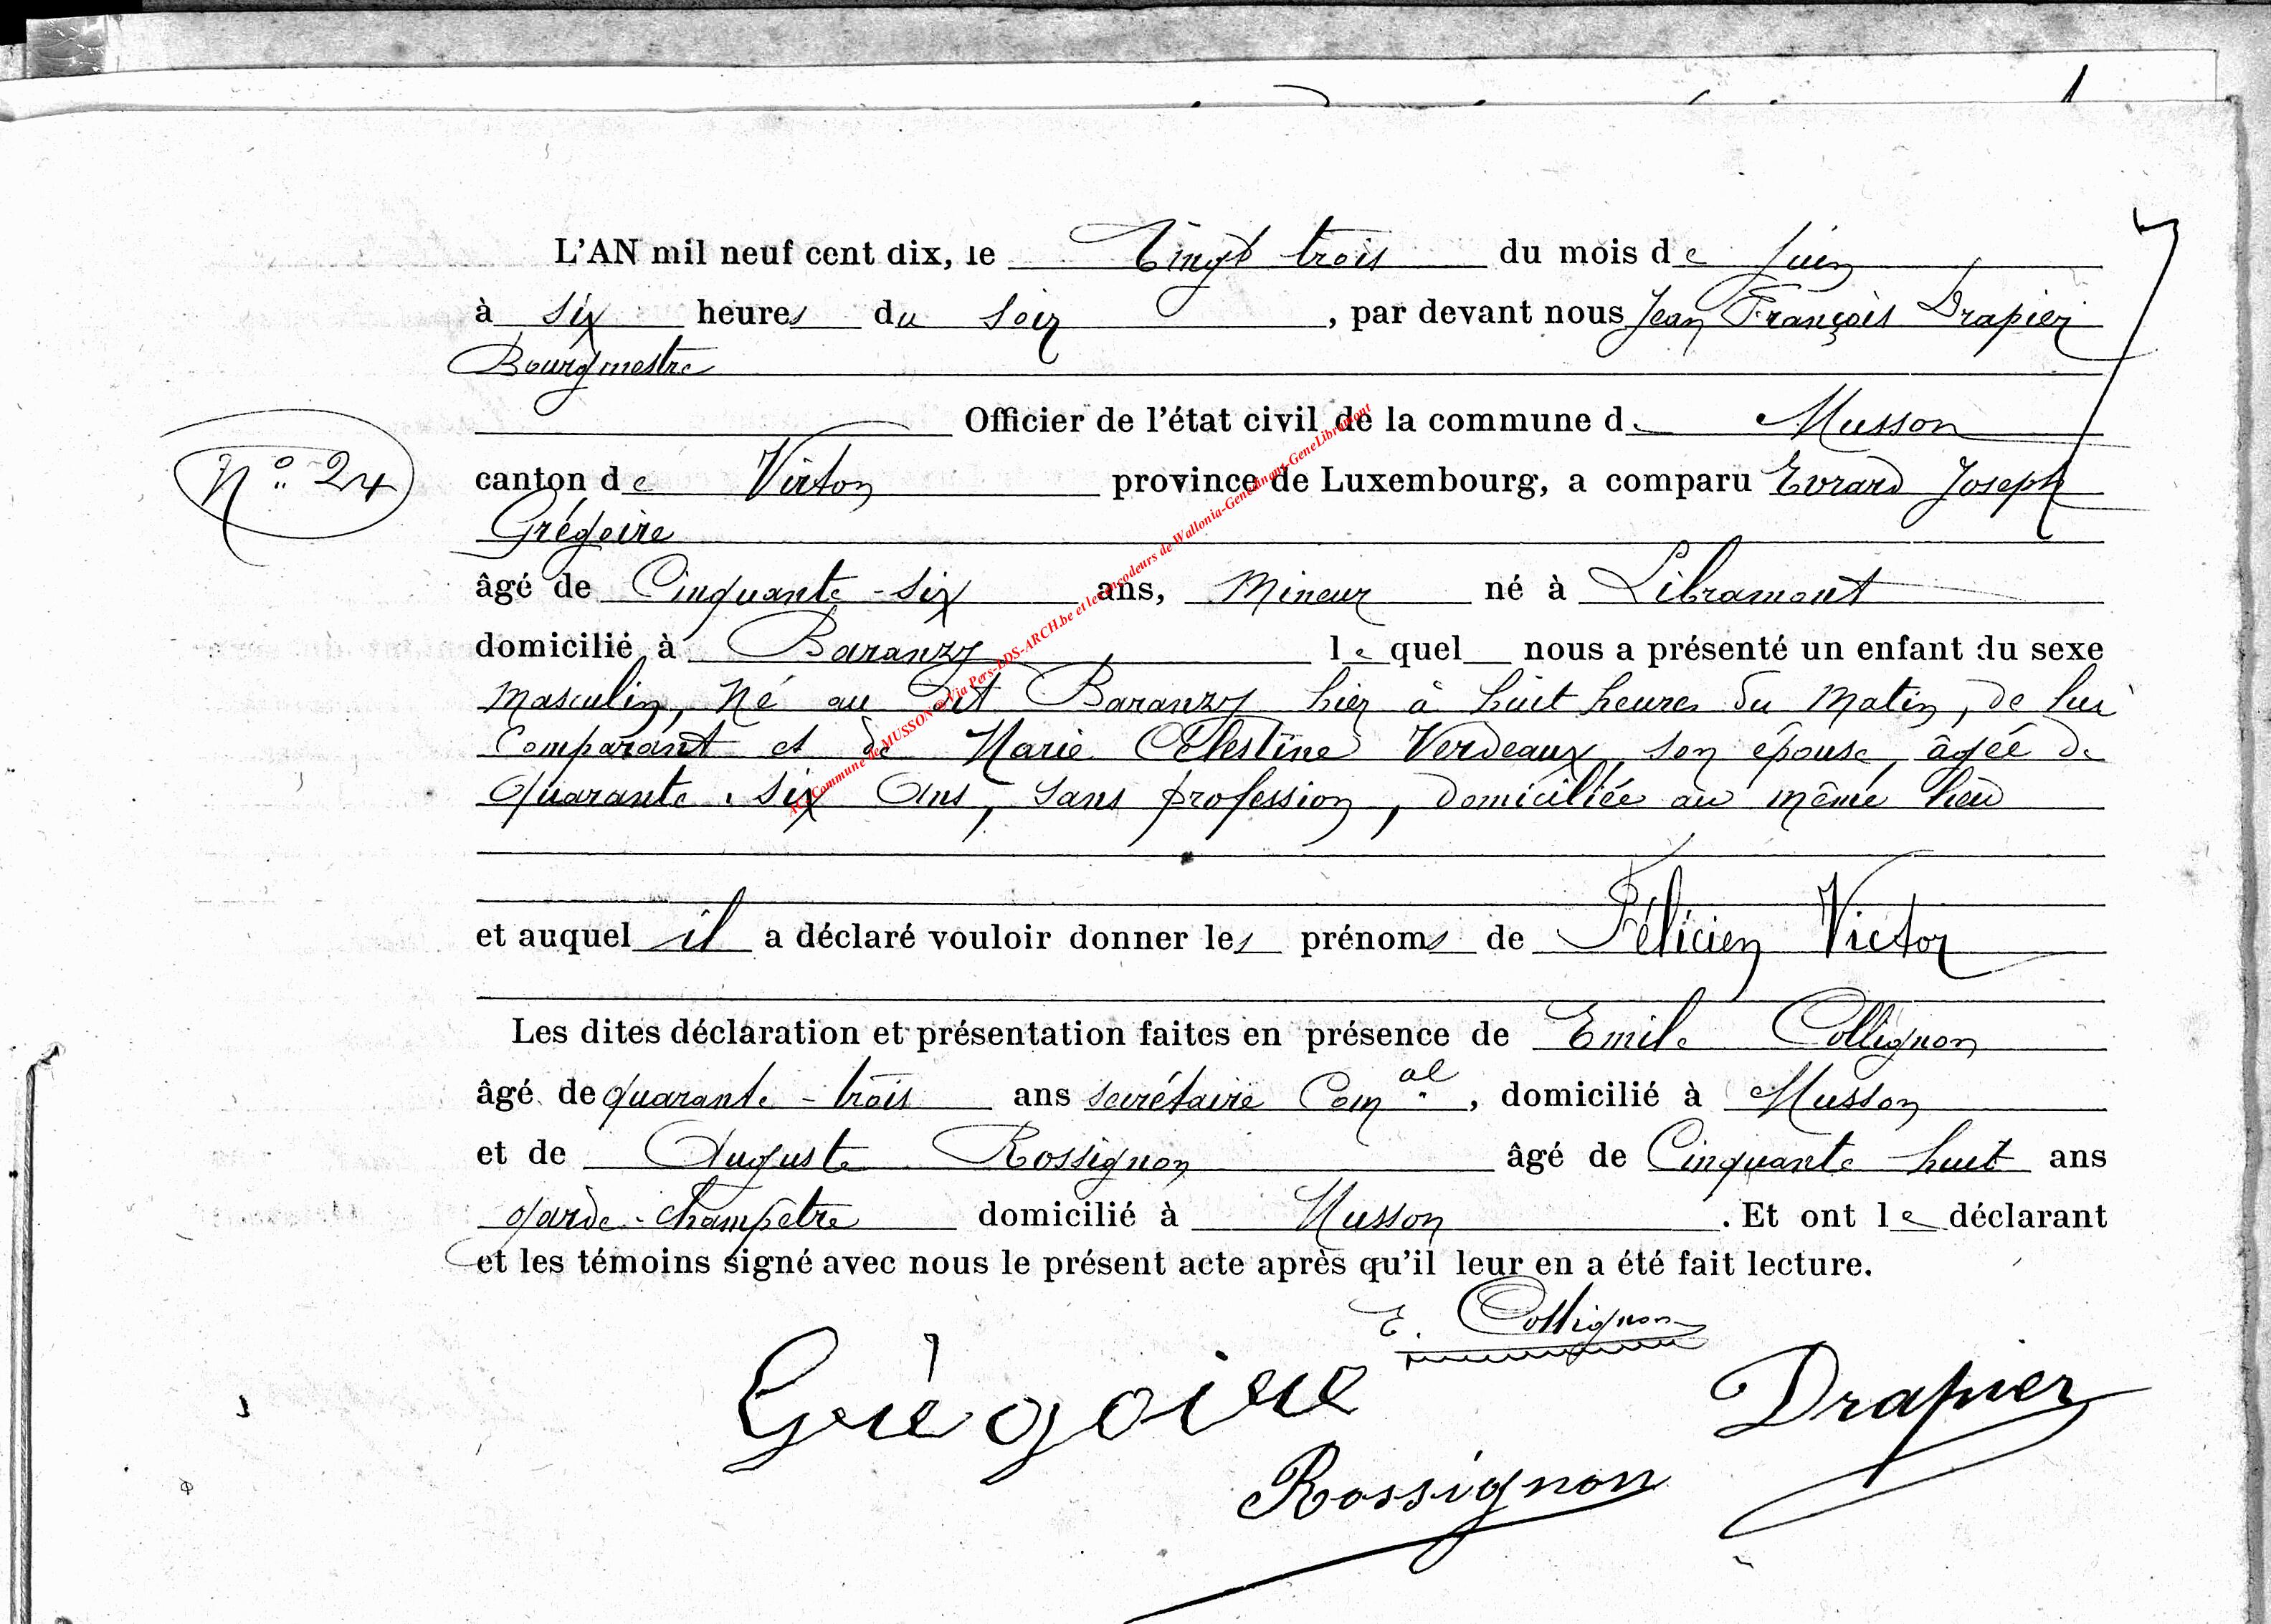 L'AN mil neuf cent dix, le Vingt trois du mois de Juin
à six heures du soir, par devant nous Jean François Drapier
Bourgmestre
Officier de l'état civil de la commune de Musson
N° 24
canton de Virton province de Luxembourg, a comparu Evrard Joseph
Grégoire
âgé de Cinquante-six ans, Mineur né à Libramont
domicilié à Baranzy lequel nous a présenté un enfant du sexe
masculin, né au dit Baranzy hier à huit heures du matin, de lui
Comparant et de Marie Célestine Verdeaux, son épouse, âgée de
quarante-six ans, sans profession, domiciliée au même lieu
et auquel il a déclaré vouloir donner les prénoms de Félicien Victor
Les dites déclaration et présentation faites en présence de Emile Collignon
âgé de quarante-trois ans secrétaire Com.al, domicilié à Musson
et de Auguste Rossignon âgé de Cinquante-huit ans
garde-champêtre domicilié à Musson. Et ont le déclarant
et les témoins signé avec nous le présent acte après qu'il leur en a été fait lecture.
E. Collignon
Grégoire
Drapier
Rossignon